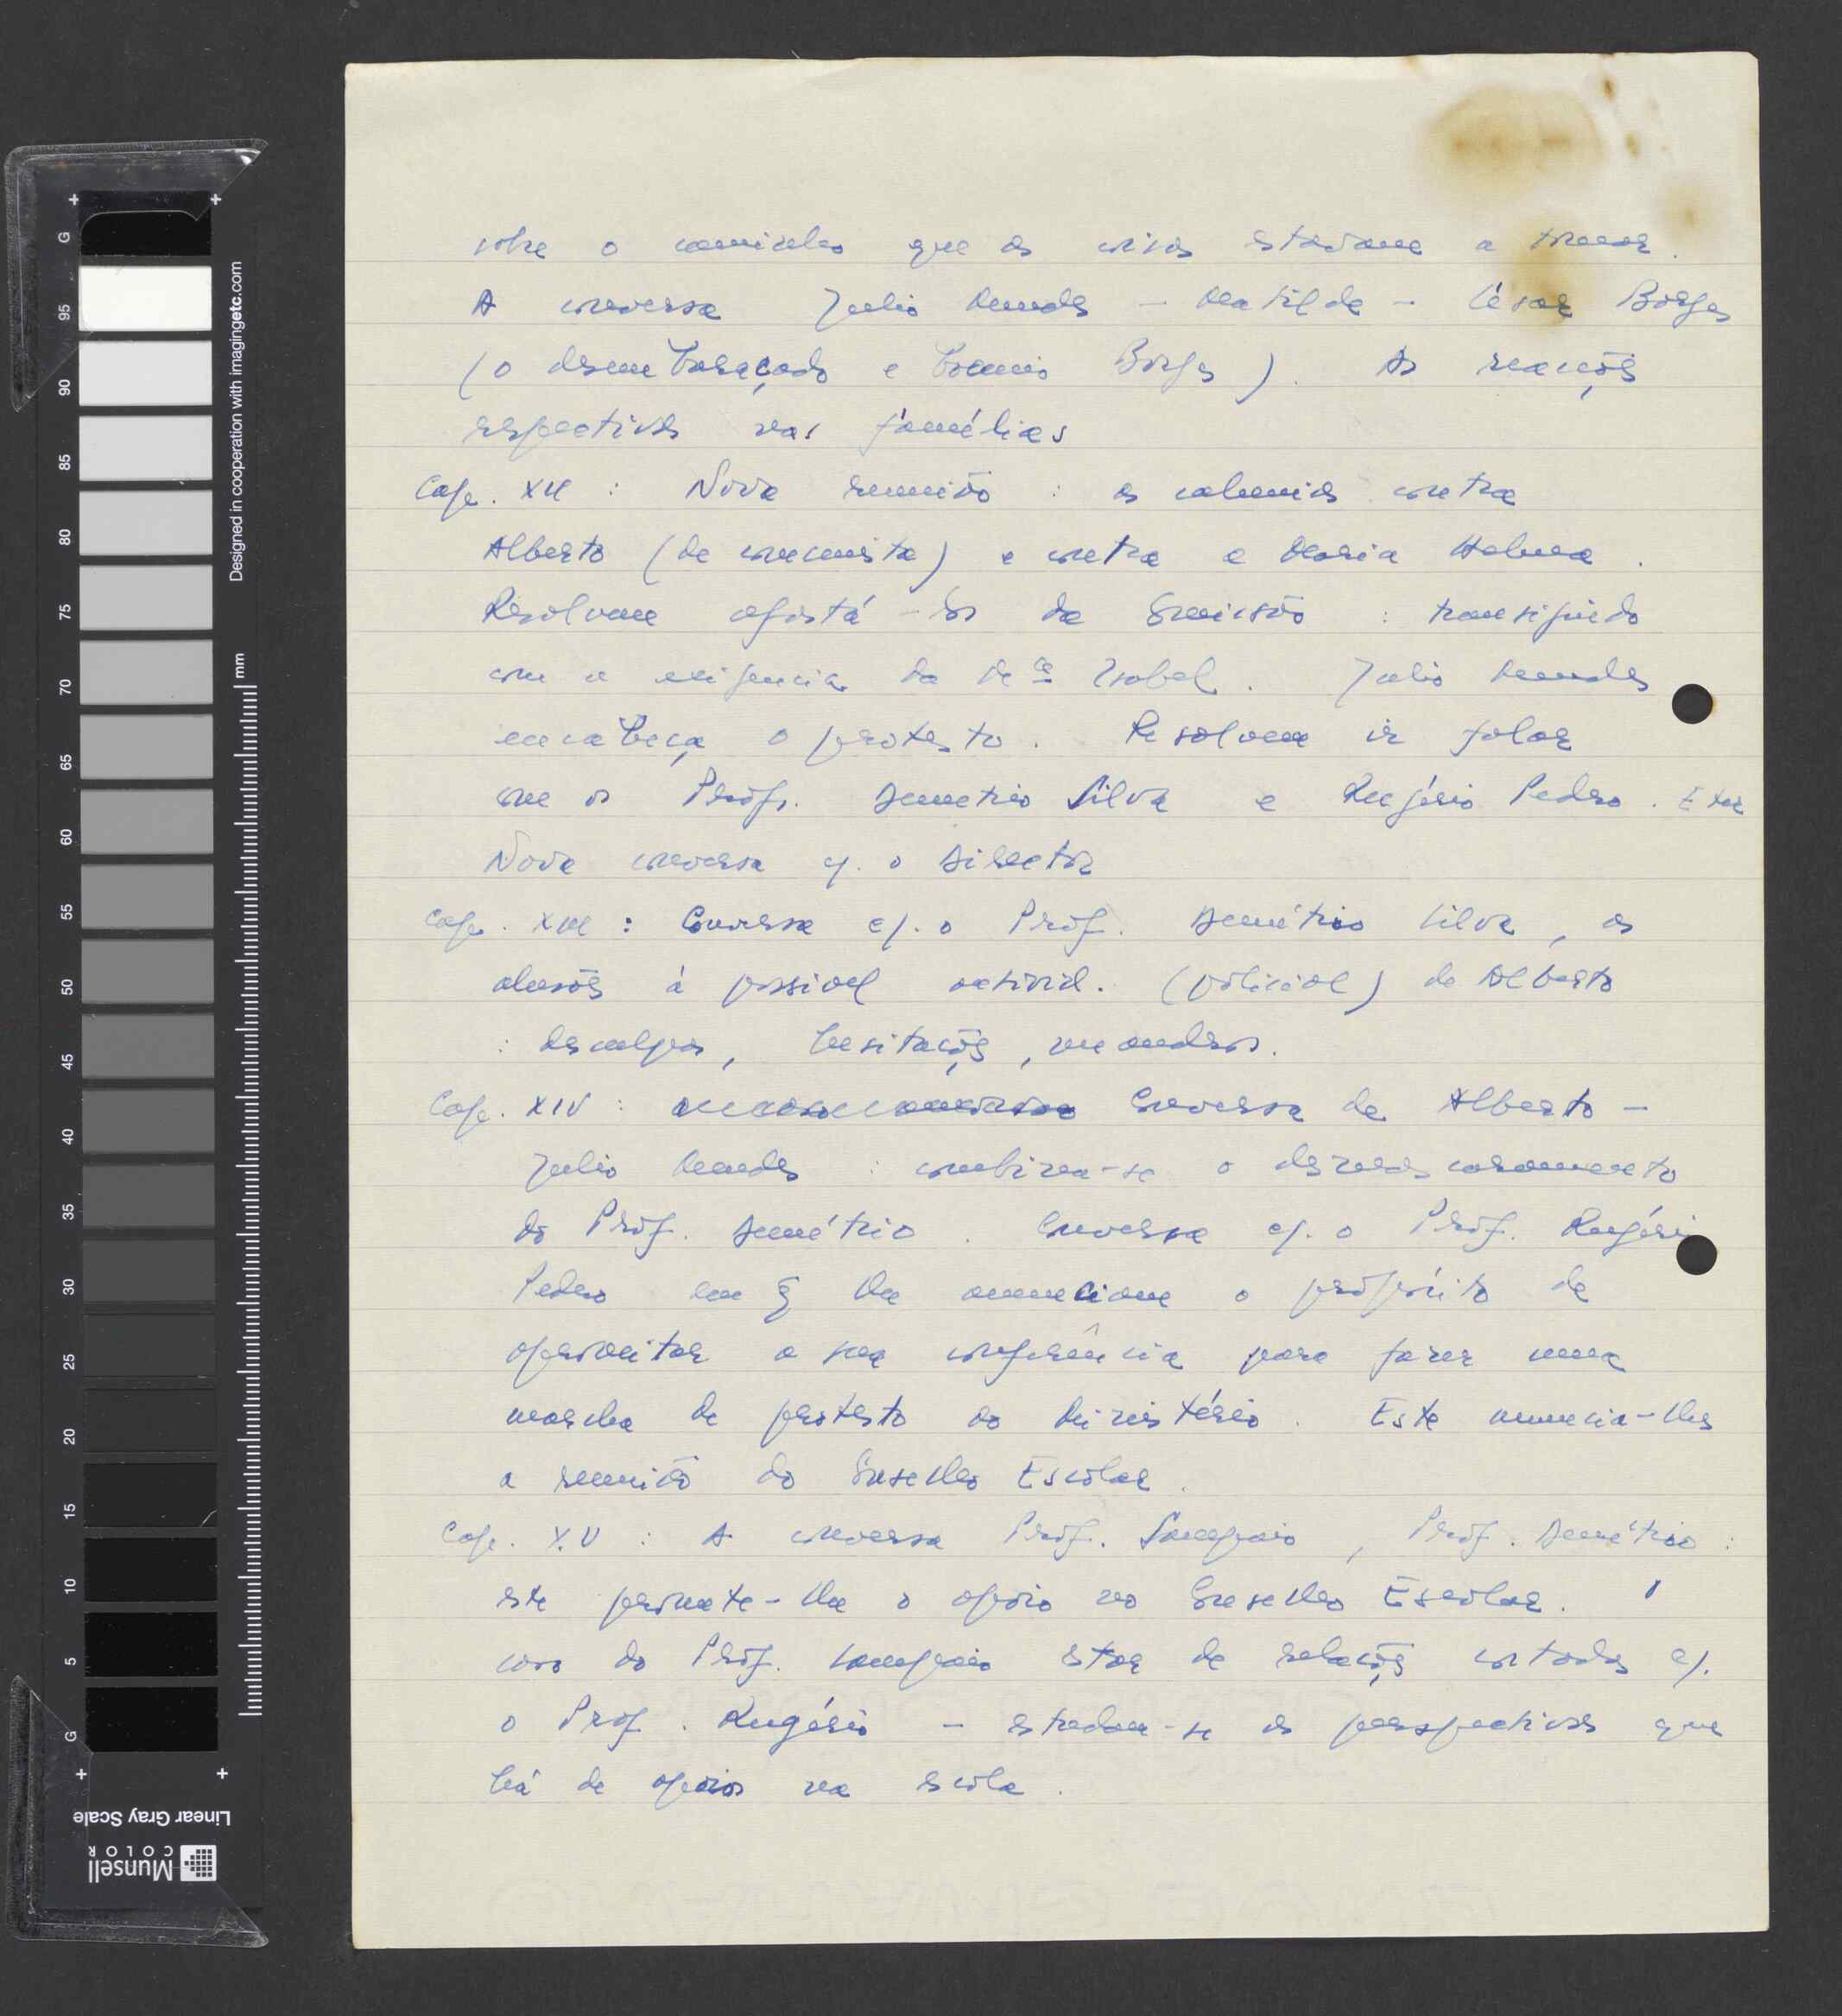 sobre o caminho que as coisas estavam a tomar.
A conversa Julio Mendes – Matilde – César Borges
(o desembaraçado e Borges). As reacções
respectivas nas famílias
Cap. XII : Nova reunião : as calunias contra
Alberto (de comunista) e contra a Maria Helena.
Resolvem afastá-los da Comissão : transigindo
com a exigencia da Dra Isabel. Julio Mendes
encabeça o protesto. Resolvem ir falar
com os Profs. Demetrio Silva e Rogério Pedro.
Nova conversa c/. o Director
Cap. XIII : Conversa c/. o Prof. Demétrio Silva, as
alusões à possivel activid. (policial) de Alberto
: desculpas, hesitações, meandros.
Cap. XIV : Conversa de Alberto –
Julio Mendes : combina-se o desmascaramento
do Prof. Demétrio. Conversa c/. o Prof. Rogério
Pedro em q̃ lhe anunciam o propósito de
aproveitar a sua conferência para fazer uma
marcha de protesto ao Ministério. Este anuncia-lhes
a reunião do Conselho Escolar.
Cap. XV : A conversa Prof. Sampaio, Prof. Demétrio :
este promete-lhe o apoio no Conselho Escolar.
caso do Prof. Sampaio estar de relações cortadas c/.
o Prof. Rogério – estudam-se as perspectivas que
há de apoios na escola.